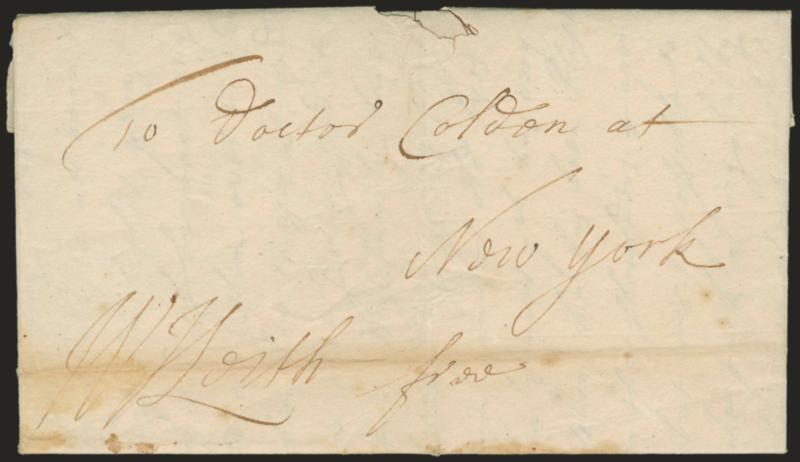 To Doctor Colden at
New York
W Keith free